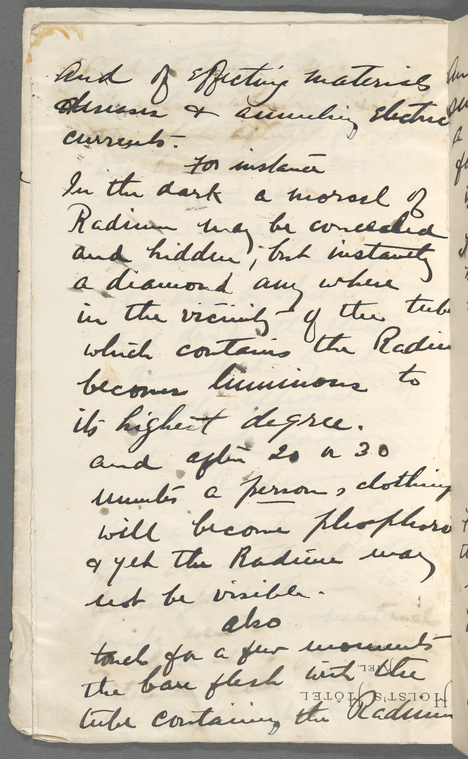 And of effecting materials
diseases & annuling electric
currents.
For instance
In the dark a morsel of
Radium may be concealed
and hidden, but instantly
a diamond any where
in the vicinity of the tube
which contains the Radiu
becomes luminous to
its highest degree.
and after 20 or 30
minutes a person, clothing
will become phosphoro
& yet the Radium may
not be visible.
also
touch for a few moments
the bare flesh with the
tube containing the Radium
HOLST'S HOTEL
KIEL